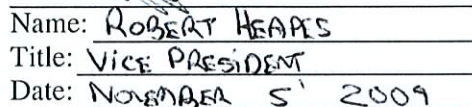 Name: ROBERT HEAPES
Title: VICE PRESIDENT
Date: NOVEMBER 5' 2009